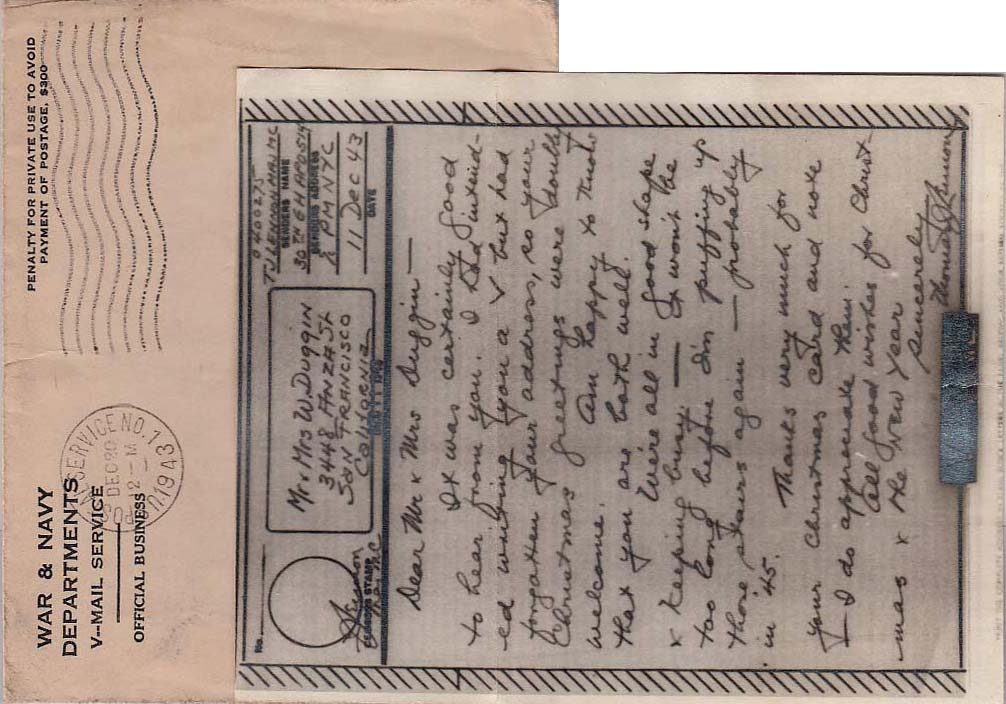 PENALTY FOR PRIVATE USE TO AVOID
PAYMENT OF POSTAGE, $300
WAR & NAVY
DEPARTMENTS
V--MAIL SERVICE
OFFICIAL BUSINESS
SERVICE NO. 13
DEC 20
12-M
1943
No.
CENSOR'S STAMP
Mr & Mrs W. DUGGIN
3448 ANZA ST
SAN FRANCISO
California
O 400275
T J LENNON MAJ MC
SENDERS NAME
30TH GH APO 514
SENDERS ADDRESS
PM NYC
11 Dec 43
DATE
Dear Mr & Mrs Duggin —
It was certainly good
to hear from you. I had intend-
ed writing you a V but had
forgotten your address, so your
Christmas greetings were doubly
welcome. Am happy to know
that you are both well.
We're all in good shape
& keeping busy — It won't be
too long before I'm puffing up
those stairs again — probably
in 45.
Thanks very much for
your Christmas card and note
— I do appreciate them
All good wishes for Christ-
mas & the New Year
Sincerely
Thomas J Lennon